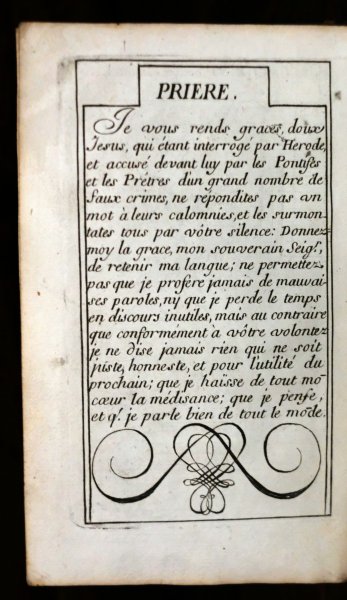 PRIERE.
Je vous rends graces, doux
Jesus, qui étant interrogé par Herode,
et accusé devant luy par les Pontifes
et les Prêtres d'un grand nombre de
faux crimes, ne répondites pas un
mot à leurs calomnies, et les surmon-
tates tous par vôtre silence: Donnez
moy la grace, mon souverain Seigr.
de retenir ma langue; ne permettez
pas que je profere jamais de mauvai-
ses paroles, ny que je perde le temps
en discours inutiles, mais au contraire
que conformément à vôtre volontez
je ne dise jamais rien qui ne soit
juste, honneste, et pour l'utilité du
prochain; que je haïsse de tout mō
cœur la médisance; que je pense,
et q̃. je parle bien de tout le mōde.